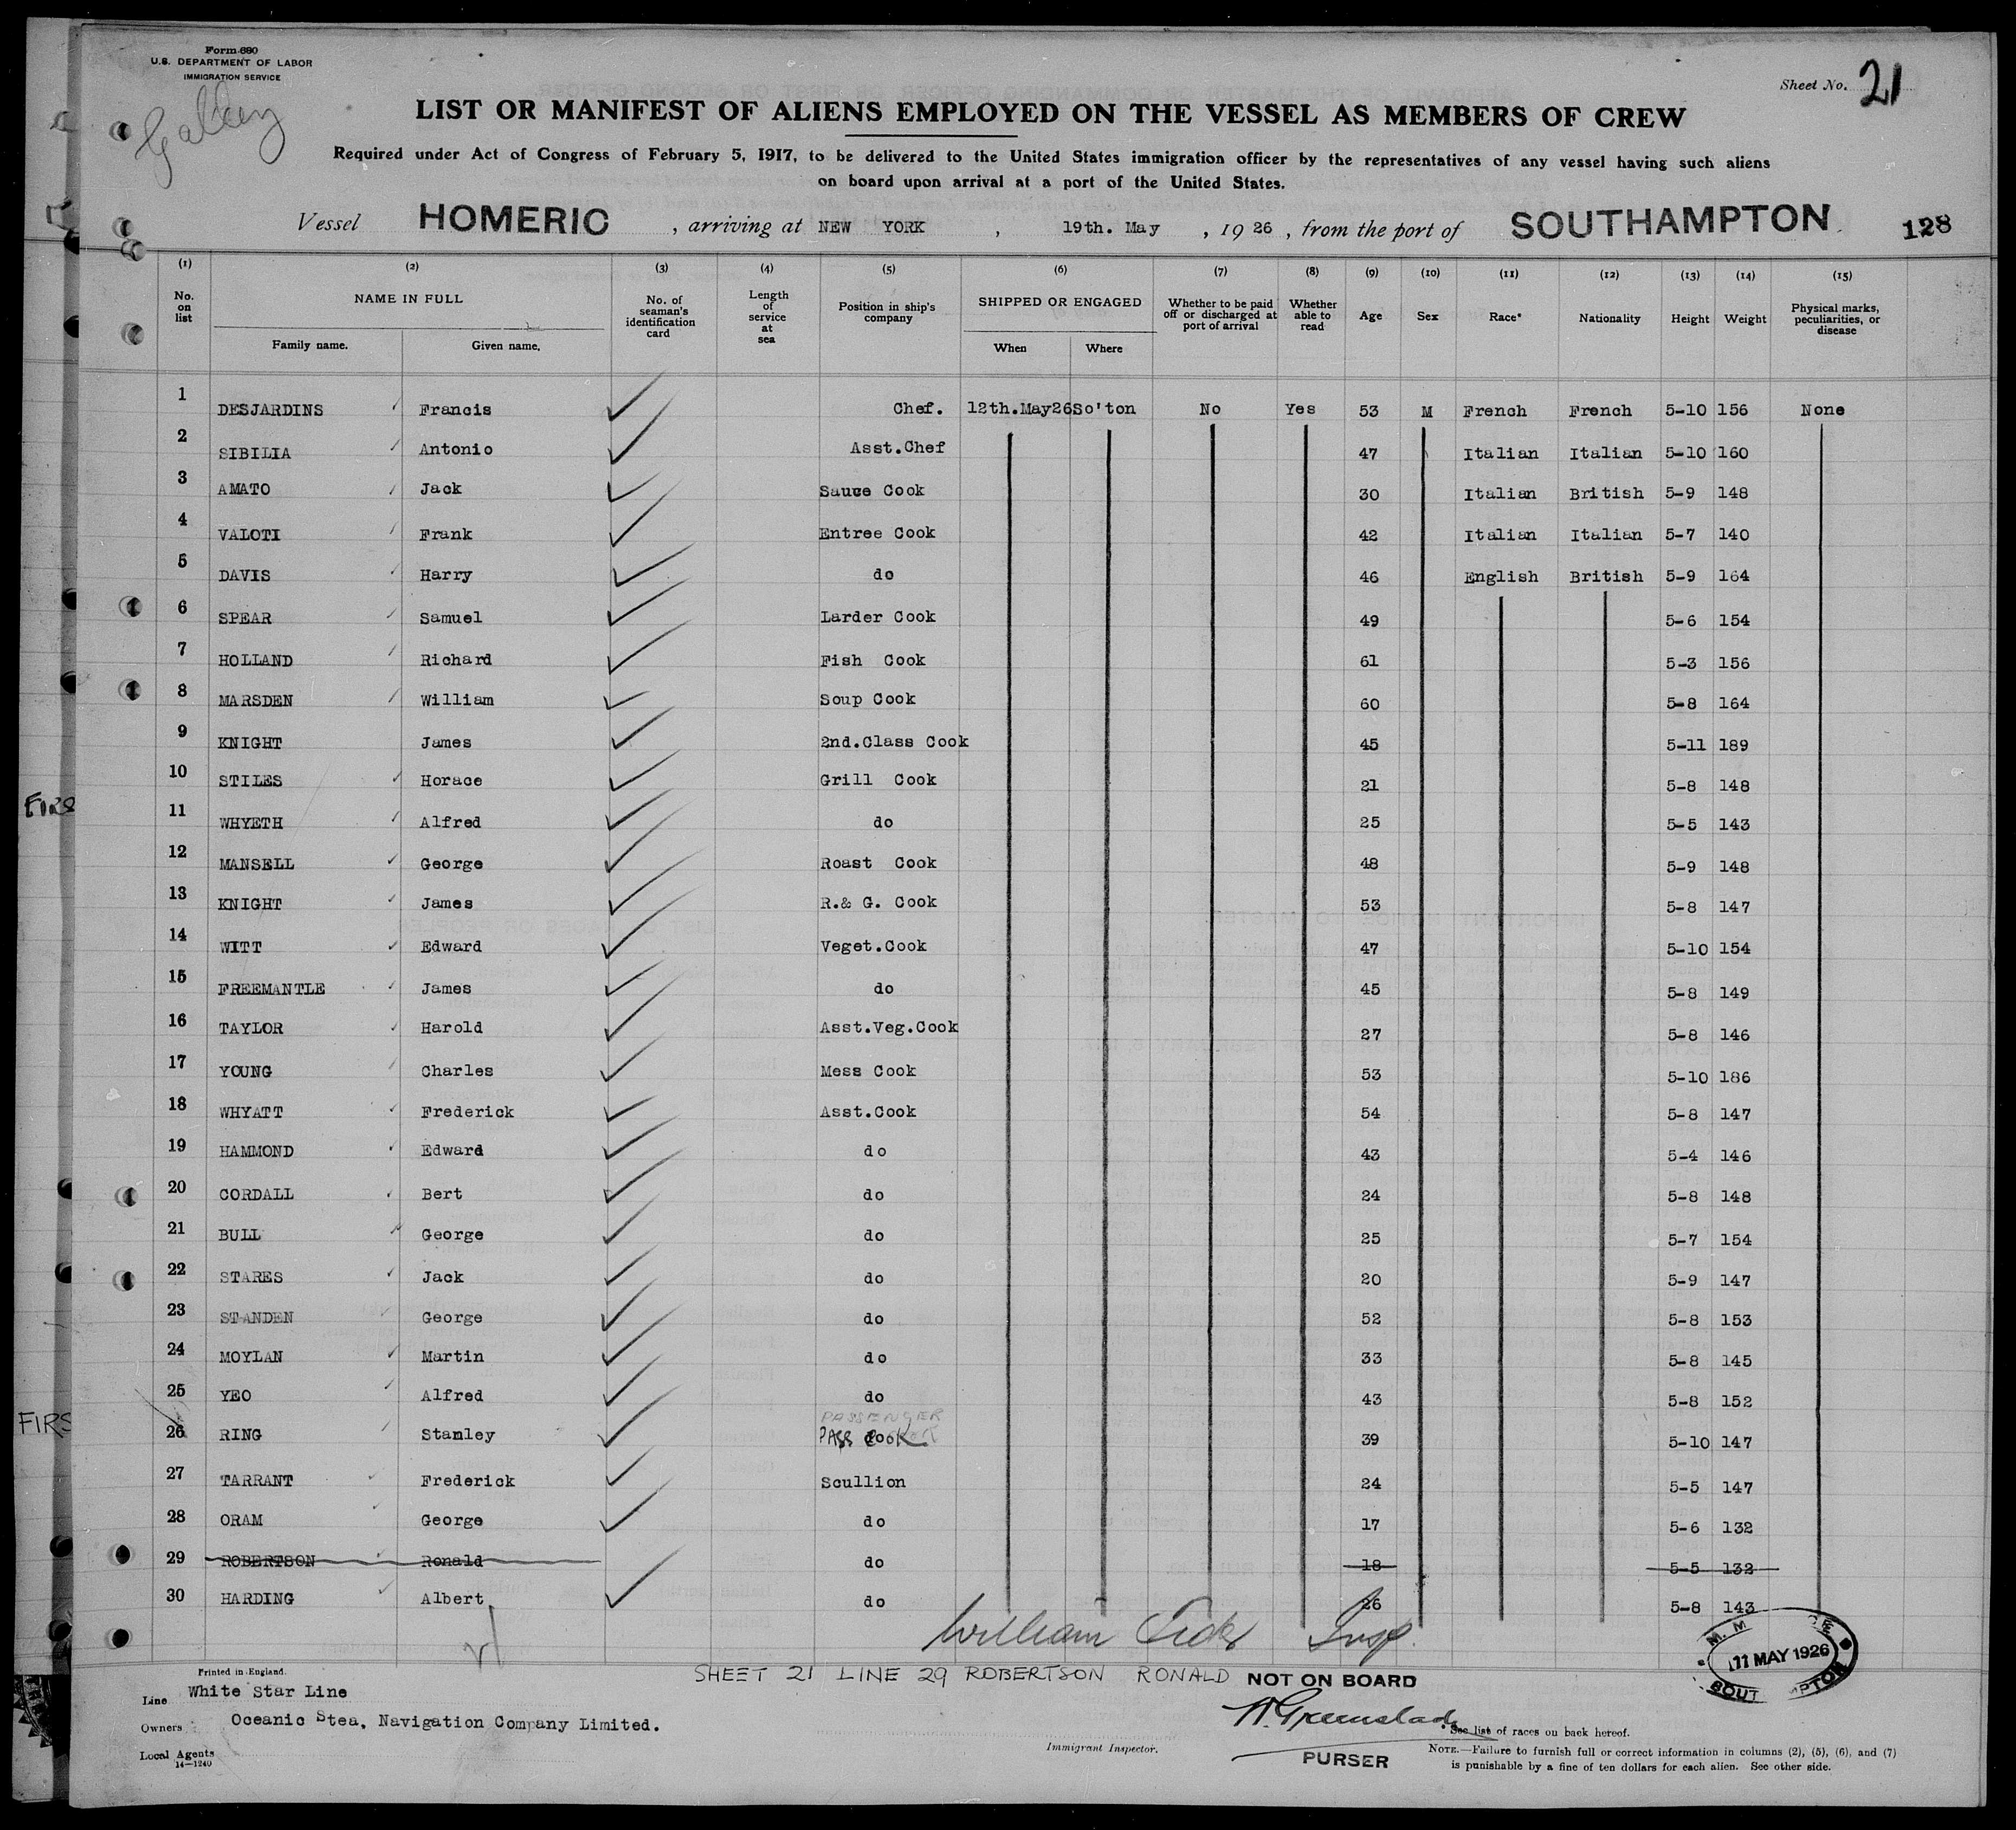 Form 680
U.S. DEPARTMENT OF LABOR
IMMIGRATION SERVICE
Galley
Sheet No. 21
LIST OR MANIFEST OF ALIENS EMPLOYED ON THE VESSEL AS MEMBERS OF CREW
Required under Act of Congress of February 5, 1917, to be delivered to the United States immigration officer by the representatives of any vessel having such aliens
on board upon arrival at a port of the United States.
Vessel HOMERIC, arriving at NEW YORK, 19th. May, 1926, from the port of SOUTHAMPTON 128
(1) (2) (3) (4) (5) (6) (7) (8) (9) (10) (11) (12) (13) (14) (15)
No. on list NAME IN FULL Family name. Given name. No. of seaman's identification card Length of service at sea Position in ship's company SHIPPED OR ENGAGED When Where Whether to be paid off or discharged at port of arrival Whether able to read Age Sex Race* Nationality Height Weight Physical marks, peculiarities, or disease
1 DESJARDINS Francis Chef. 12th.May26 So'ton No Yes 53 M French French 5-10 156 None
2 SIBILIA Antonio Asst.Chef 47 Italian Italian 5-10 160
3 AMATO Jack Sauce Cook 30 Italian British 5-9 148
4 VALOTI Frank Entree Cook 42 Italian Italian 5-7 140
5 DAVIS Harry do 46 English British 5-9 164
6 SPEAR Samuel Larder Cook 49 5-6 154
7 HOLLAND Richard Fish Cook 61 5-3 156
8 MARSDEN William Soup Cook 60 5-8 164
9 KNIGHT James 2nd.Class Cook 45 5-11 189
10 STILES Horace Grill Cook 21 5-8 148
11 WHYETH Alfred do 25 5-5 143
12 MANSELL George Roast Cook 48 5-9 148
13 KNIGHT James R.& G. Cook 53 5-8 147
14 WITT Edward Veget.Cook 47 5-10 154
15 FREEMANTLE James do 45 5-8 149
16 TAYLOR Harold Asst.Veg.Cook 27 5-8 146
17 YOUNG Charles Mess Cook 53 5-10 186
18 WHYATT Frederick Asst.Cook 54 5-8 147
19 HAMMOND Edward do 43 5-4 146
20 CORDALL Bert do 24 5-8 148
21 BULL George do 25 5-7 154
22 STARES Jack do 20 5-9 147
23 STANDEN George do 52 5-8 153
24 MOYLAN Martin do 33 5-8 145
25 YEO Alfred do 43 5-8 152
PASSENGER
26 RING Stanley PASS COOK 39 5-10 147
27 TARRANT Frederick Scullion 24 5-5 147
28 ORAM George do 17 5-6 132
29 ROBERTSON Ronald do 18 5-5 132
30 HARDING Albert do 26 5-8 143
FIRS
FIRS
William Insp.
11 MAY 1926
SHEET 21 LINE 29 ROBERTSON RONALD NOT ON BOARD
Printed in England.
Line White Star Line
Owners Oceanic Stea, Navigation Company Limited.
Local Agents
14—1240
Immigrant Inspector.
PURSER
* See list of races on back hereof.
NOTE.—Failure to furnish full or correct information in columns (2), (5), (6), and (7)
is punishable by a fine of ten dollars for each alien. See other side.